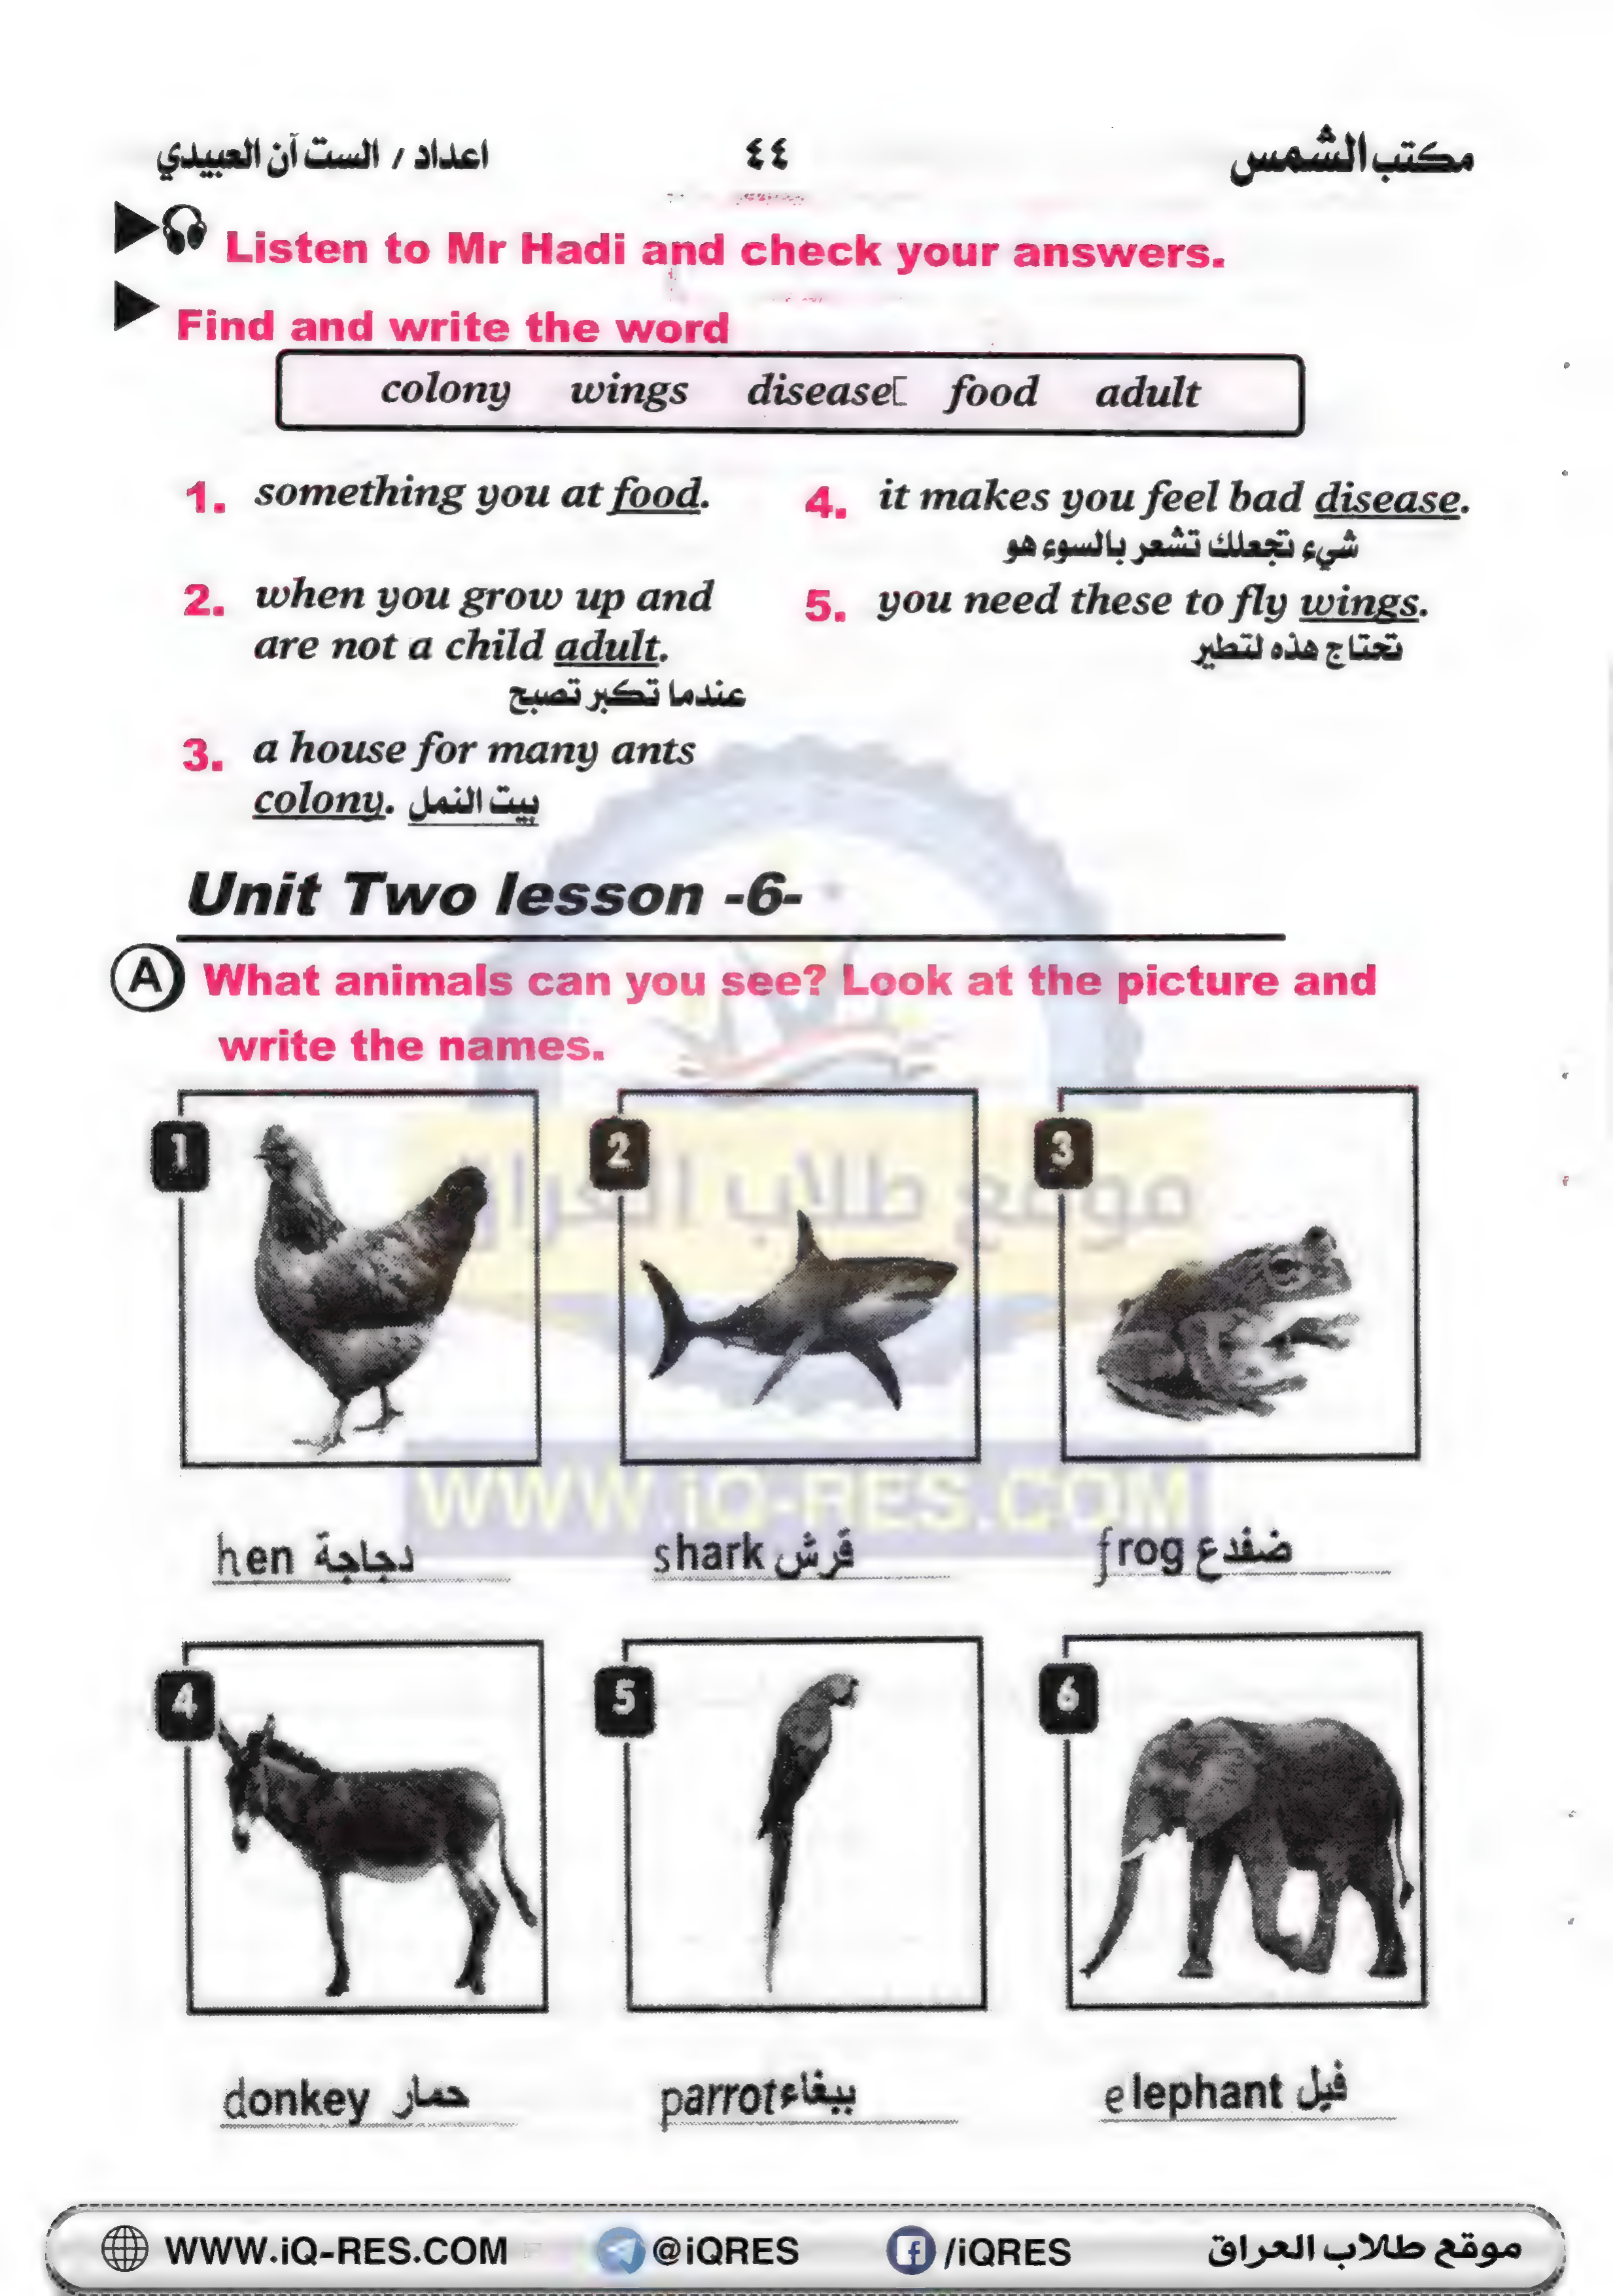 مكتب الشمس ٤٤ اعداد / الست آن العبيدي
Listen to Mr Hadi and check your answers.
Find and write the word
colony wings disease food adult
1. something you at food.
2. when you grow up and
are not a child adult.
عندما تكبر تصبح
3. a house for many ants
colony. بيت النمل
4. it makes you feel bad disease.
شيء تجعلك تشعر بالسوء هو
5. you need these to fly wings.
تحتاج هذه لتطير
Unit Two lesson -6-
A What animals can you see? Look at the picture and
write the names.
1 2 3
موقع طلاب العراق
WWW.iQ-RES.COM
hen دجاجة shark قرش frog ضفدع
4 5 6
donkey حمار parrot ببغاء elephant فيل
WWW.iQ-RES.COM @iQRES /iQRES موقع طلاب العراق